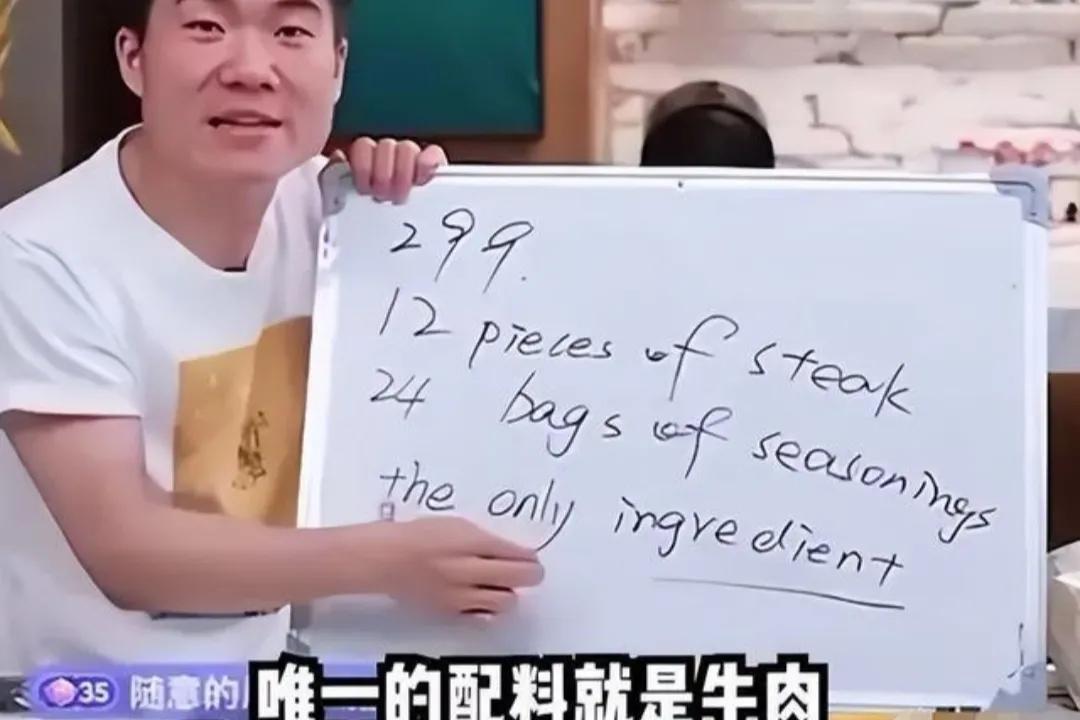 299.
12 pieces of steak
24 bags of seasonings
the only ingredient
35 随意的
唯一的配料就是牛肉